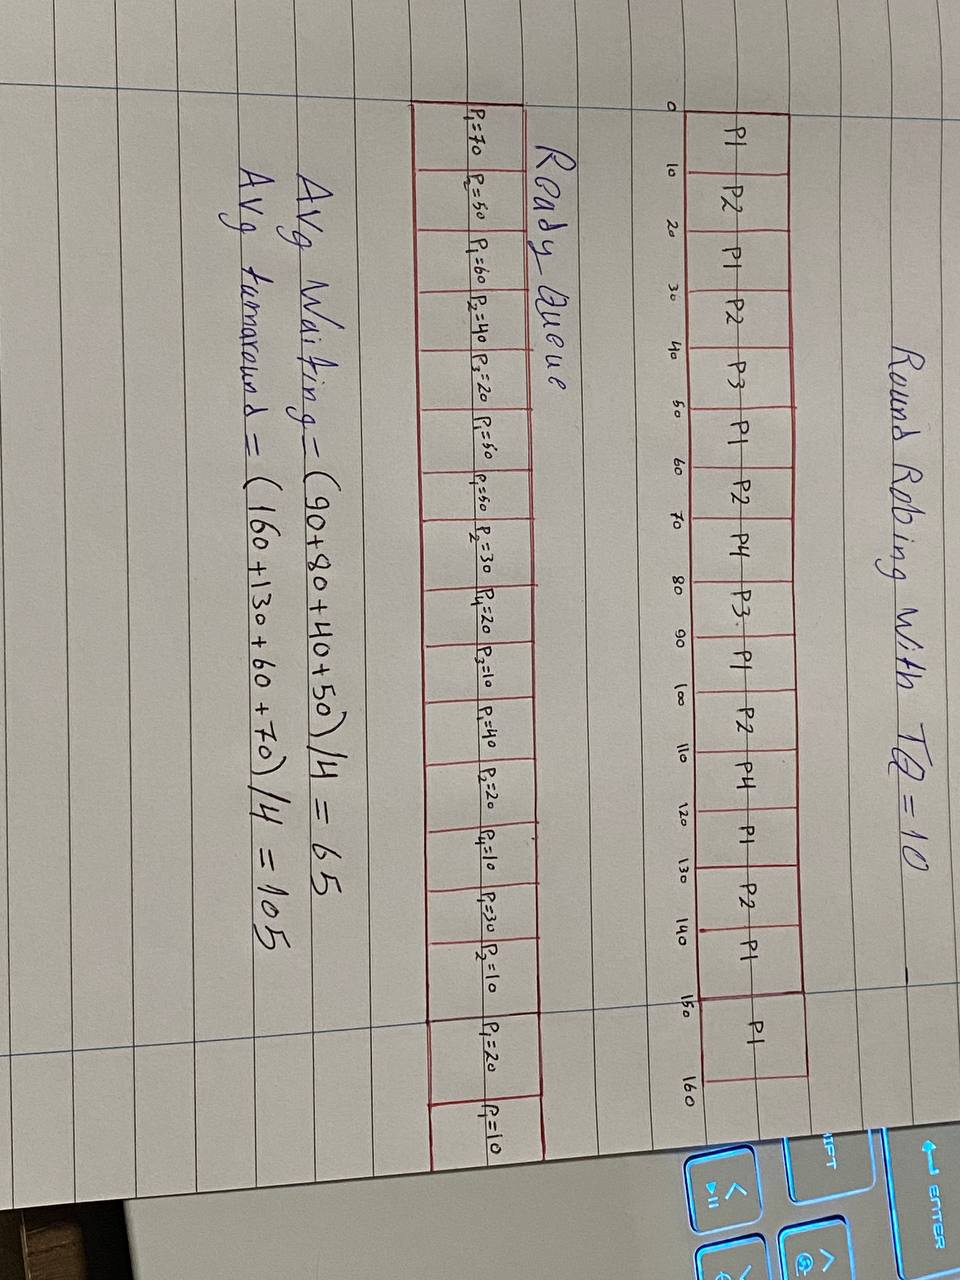 Round Robing With TQ = 10
P1 P2 P1 P2 P3 P1 P2 P4 P3 P1 P2 P4 P1 P2 P1 P1
0 10 20 30 40 50 60 70 80 90 100 110 120 130 140 150 160
Ready Queue
P1=70 P2=50 P1=60 P2=40 P3=20 P1=50 P1=50 P2=30 P4=20 P3=10 P1=40 P2=20 P4=10 P1=30 P2=10 P1=20 P1=10
Avg Waiting = (90+80+40+50)/4 = 65
Avg turnaround = (160+130+60+70)/4 = 105
ENTER
IFT